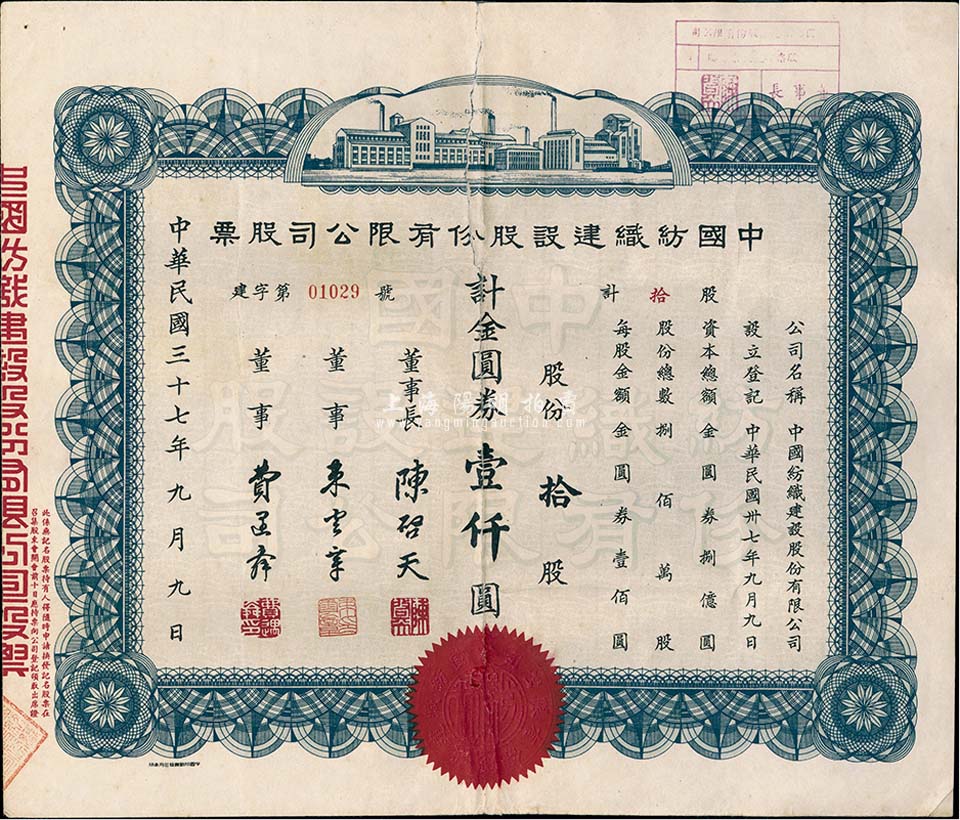 中國紡織建設股份有限公司股票
公司名稱　中國紡織建設股份有限公司
設立登記　中華民國卅七年九月九日
股資本總額金圓券捌億圓
拾股份總數捌佰萬股
計每股金額金圓券壹佰圓
股份拾股
計金圓券壹仟圓
建字第 01029 號
董事長　陳啓天
董事
董事
中華民國三十七年九月九日
此係無記名股票持有人得隨時申請換發記名股票在
召集股東會開會前十日應持票向公司登記領取出席證
中國紡織建設股份有限公司股票
上海陽明拍賣
www.yangmingauction.com
董事長